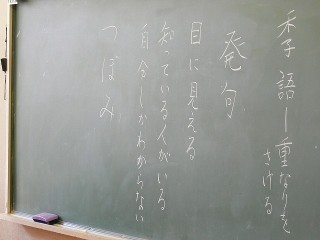 季語 — 重なりを
さける
発句
目に見える
知っている人がいる
自分しかわからない
つぼみ